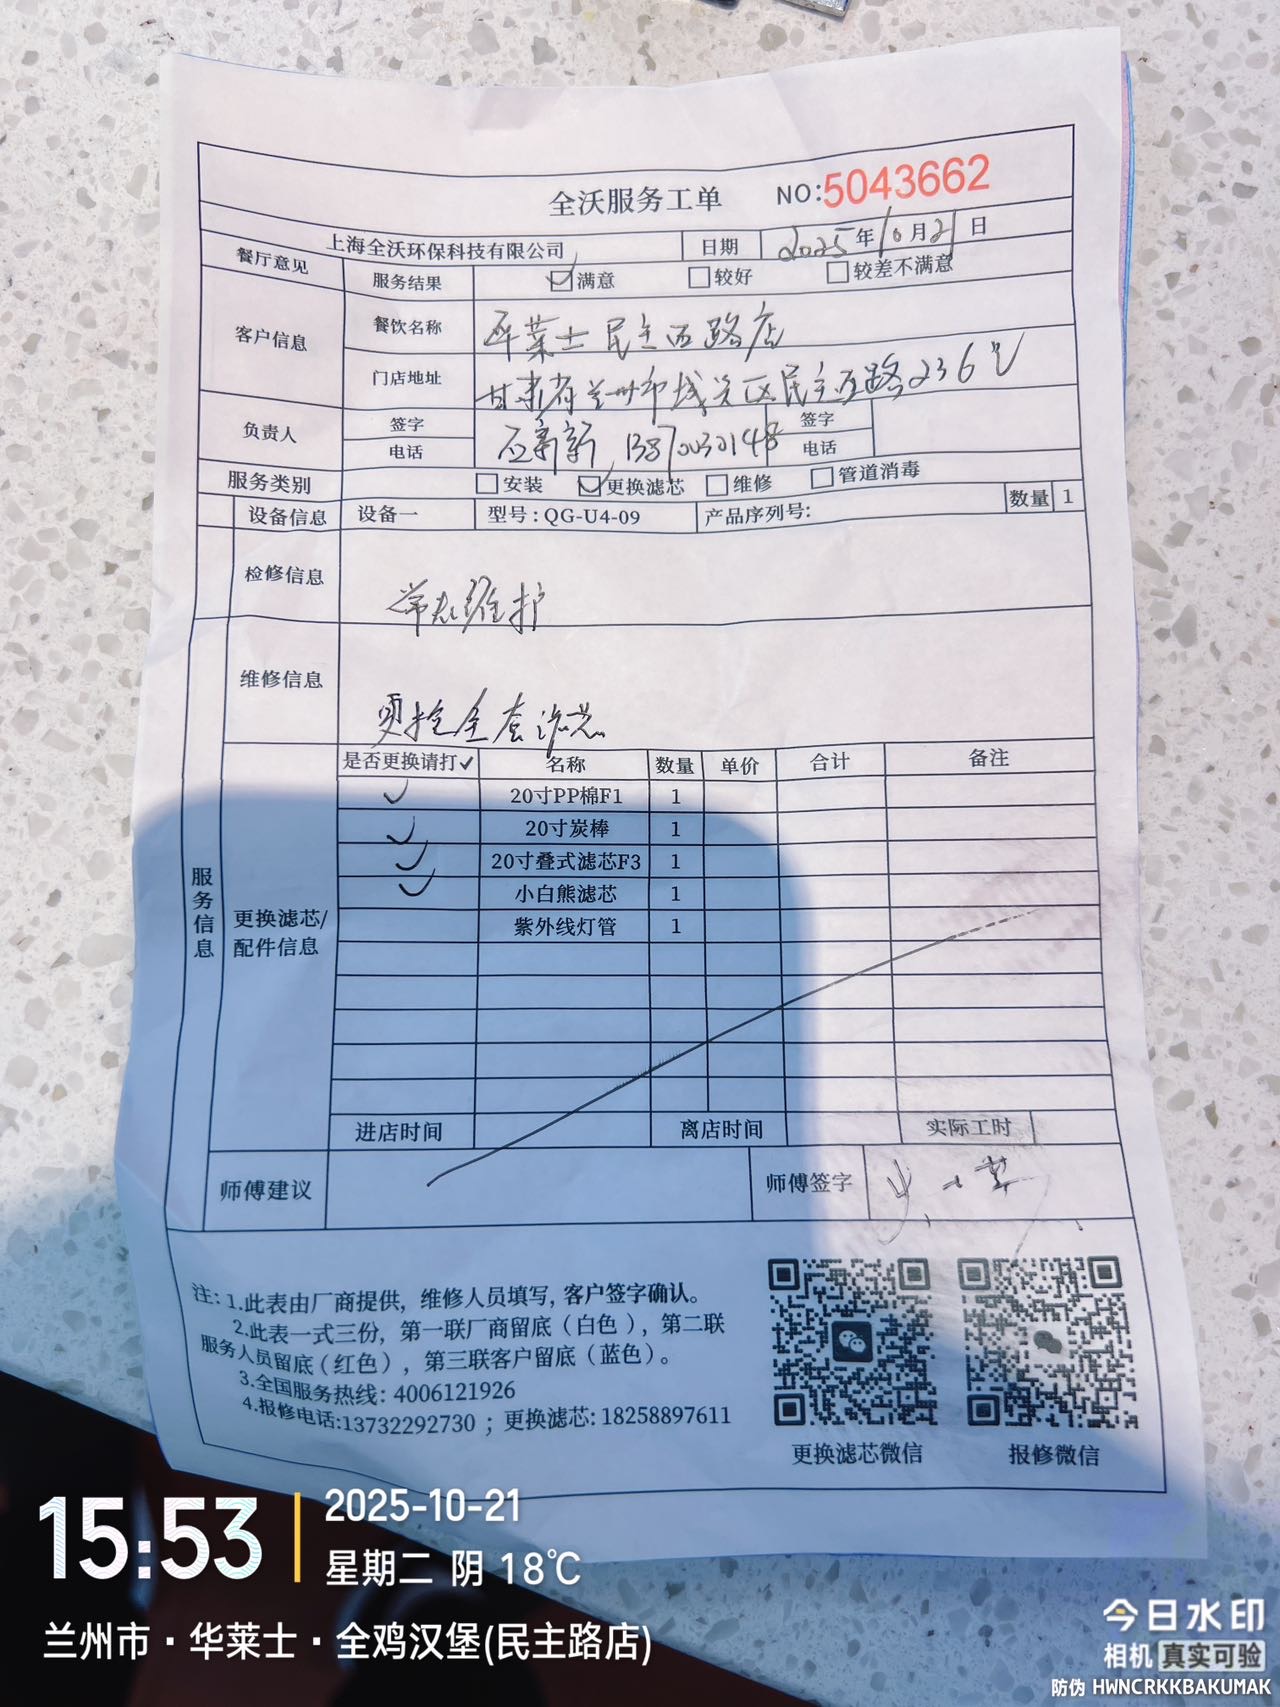 全沃服务工单 NO:5043662
上海全沃环保科技有限公司 日期 2025年10月21日
餐厅意见 服务结果 满意 较好 较差不满意
客户信息 餐饮名称 华莱士民主西路店
门店地址 甘肃省兰州市城关区民主西路236号
负责人 签字 电话 13870030148 签字 电话
服务类别 安装 更换滤芯 维修 管道消毒
设备信息 设备一 型号:QG-U4-09 产品序列号: 数量 1
检修信息 常规维护
维修信息 更换全套滤芯
是否更换请打✓ 名称 数量 单价 合计 备注
✓ 20寸PP棉F1 1
✓ 20寸炭棒 1
✓ 20寸叠式滤芯F3 1
✓ 小白熊滤芯 1
紫外线灯管 1
服务信息
更换滤芯/
配件信息
进店时间 离店时间 实际工时
师傅建议 师傅签字
注: 1.此表由厂商提供, 维修人员填写, 客户签字确认。
2.此表一式三份, 第一联厂商留底(白色), 第二联
服务人员留底(红色), 第三联客户留底(蓝色)。
3.全国服务热线: 4006121926
4.报修电话:13732292730 ; 更换滤芯: 18258897611
更换滤芯微信 报修微信
15:53 2025-10-21
星期二 阴 18℃
兰州市·华莱士·全鸡汉堡(民主路店)
今日水印
相机 真实可验
防伪 HWNCRKKBAKUMAK